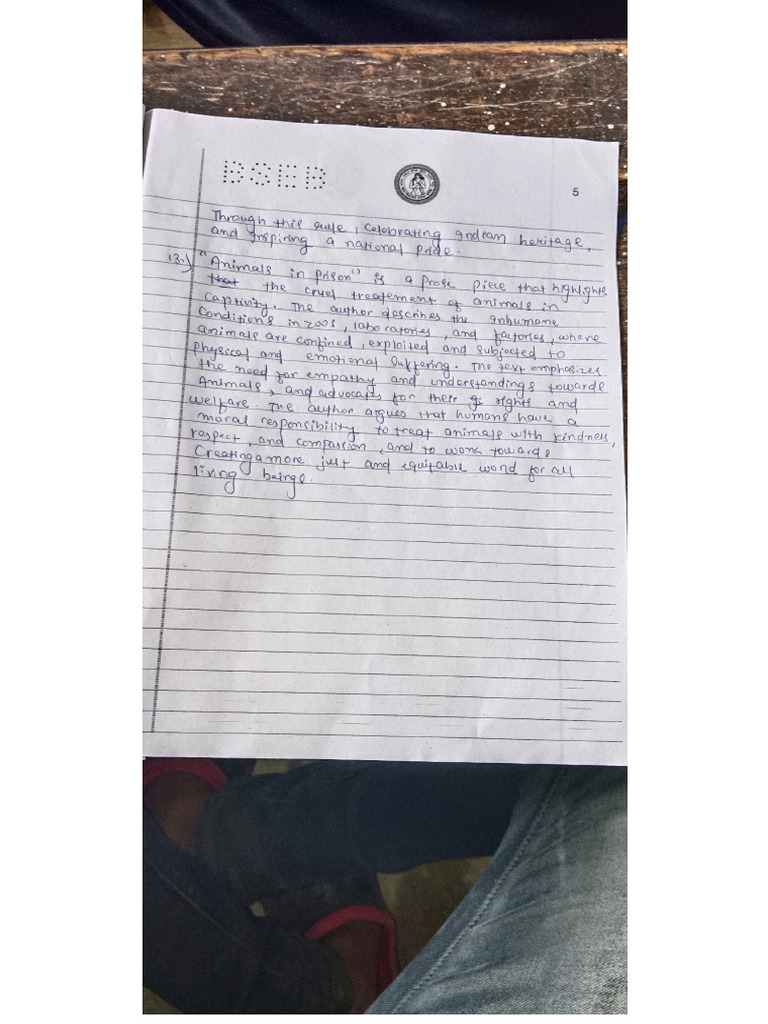 BSEB
5
Through this rule, Celebrating Indian heritage,
and Inspiring a national pride.
13.) "Animals in prison" is a prose piece that highlights
that the cruel treatement of animals in
captivity. The author describes the inhumane
Conditions in zoos, laboratories, and factories, where
animals are confined, exploited and subjected to
physical and emotional suffering. The text emphasizes
the need for empathy and understandings towards
Animals, and advocates for there rights and
welfare The author argues that humans have a
moral responsibility to treat animals with kindness,
respect, and compassion, and to work towards
Creating a more just and equitable world for all
living beings.